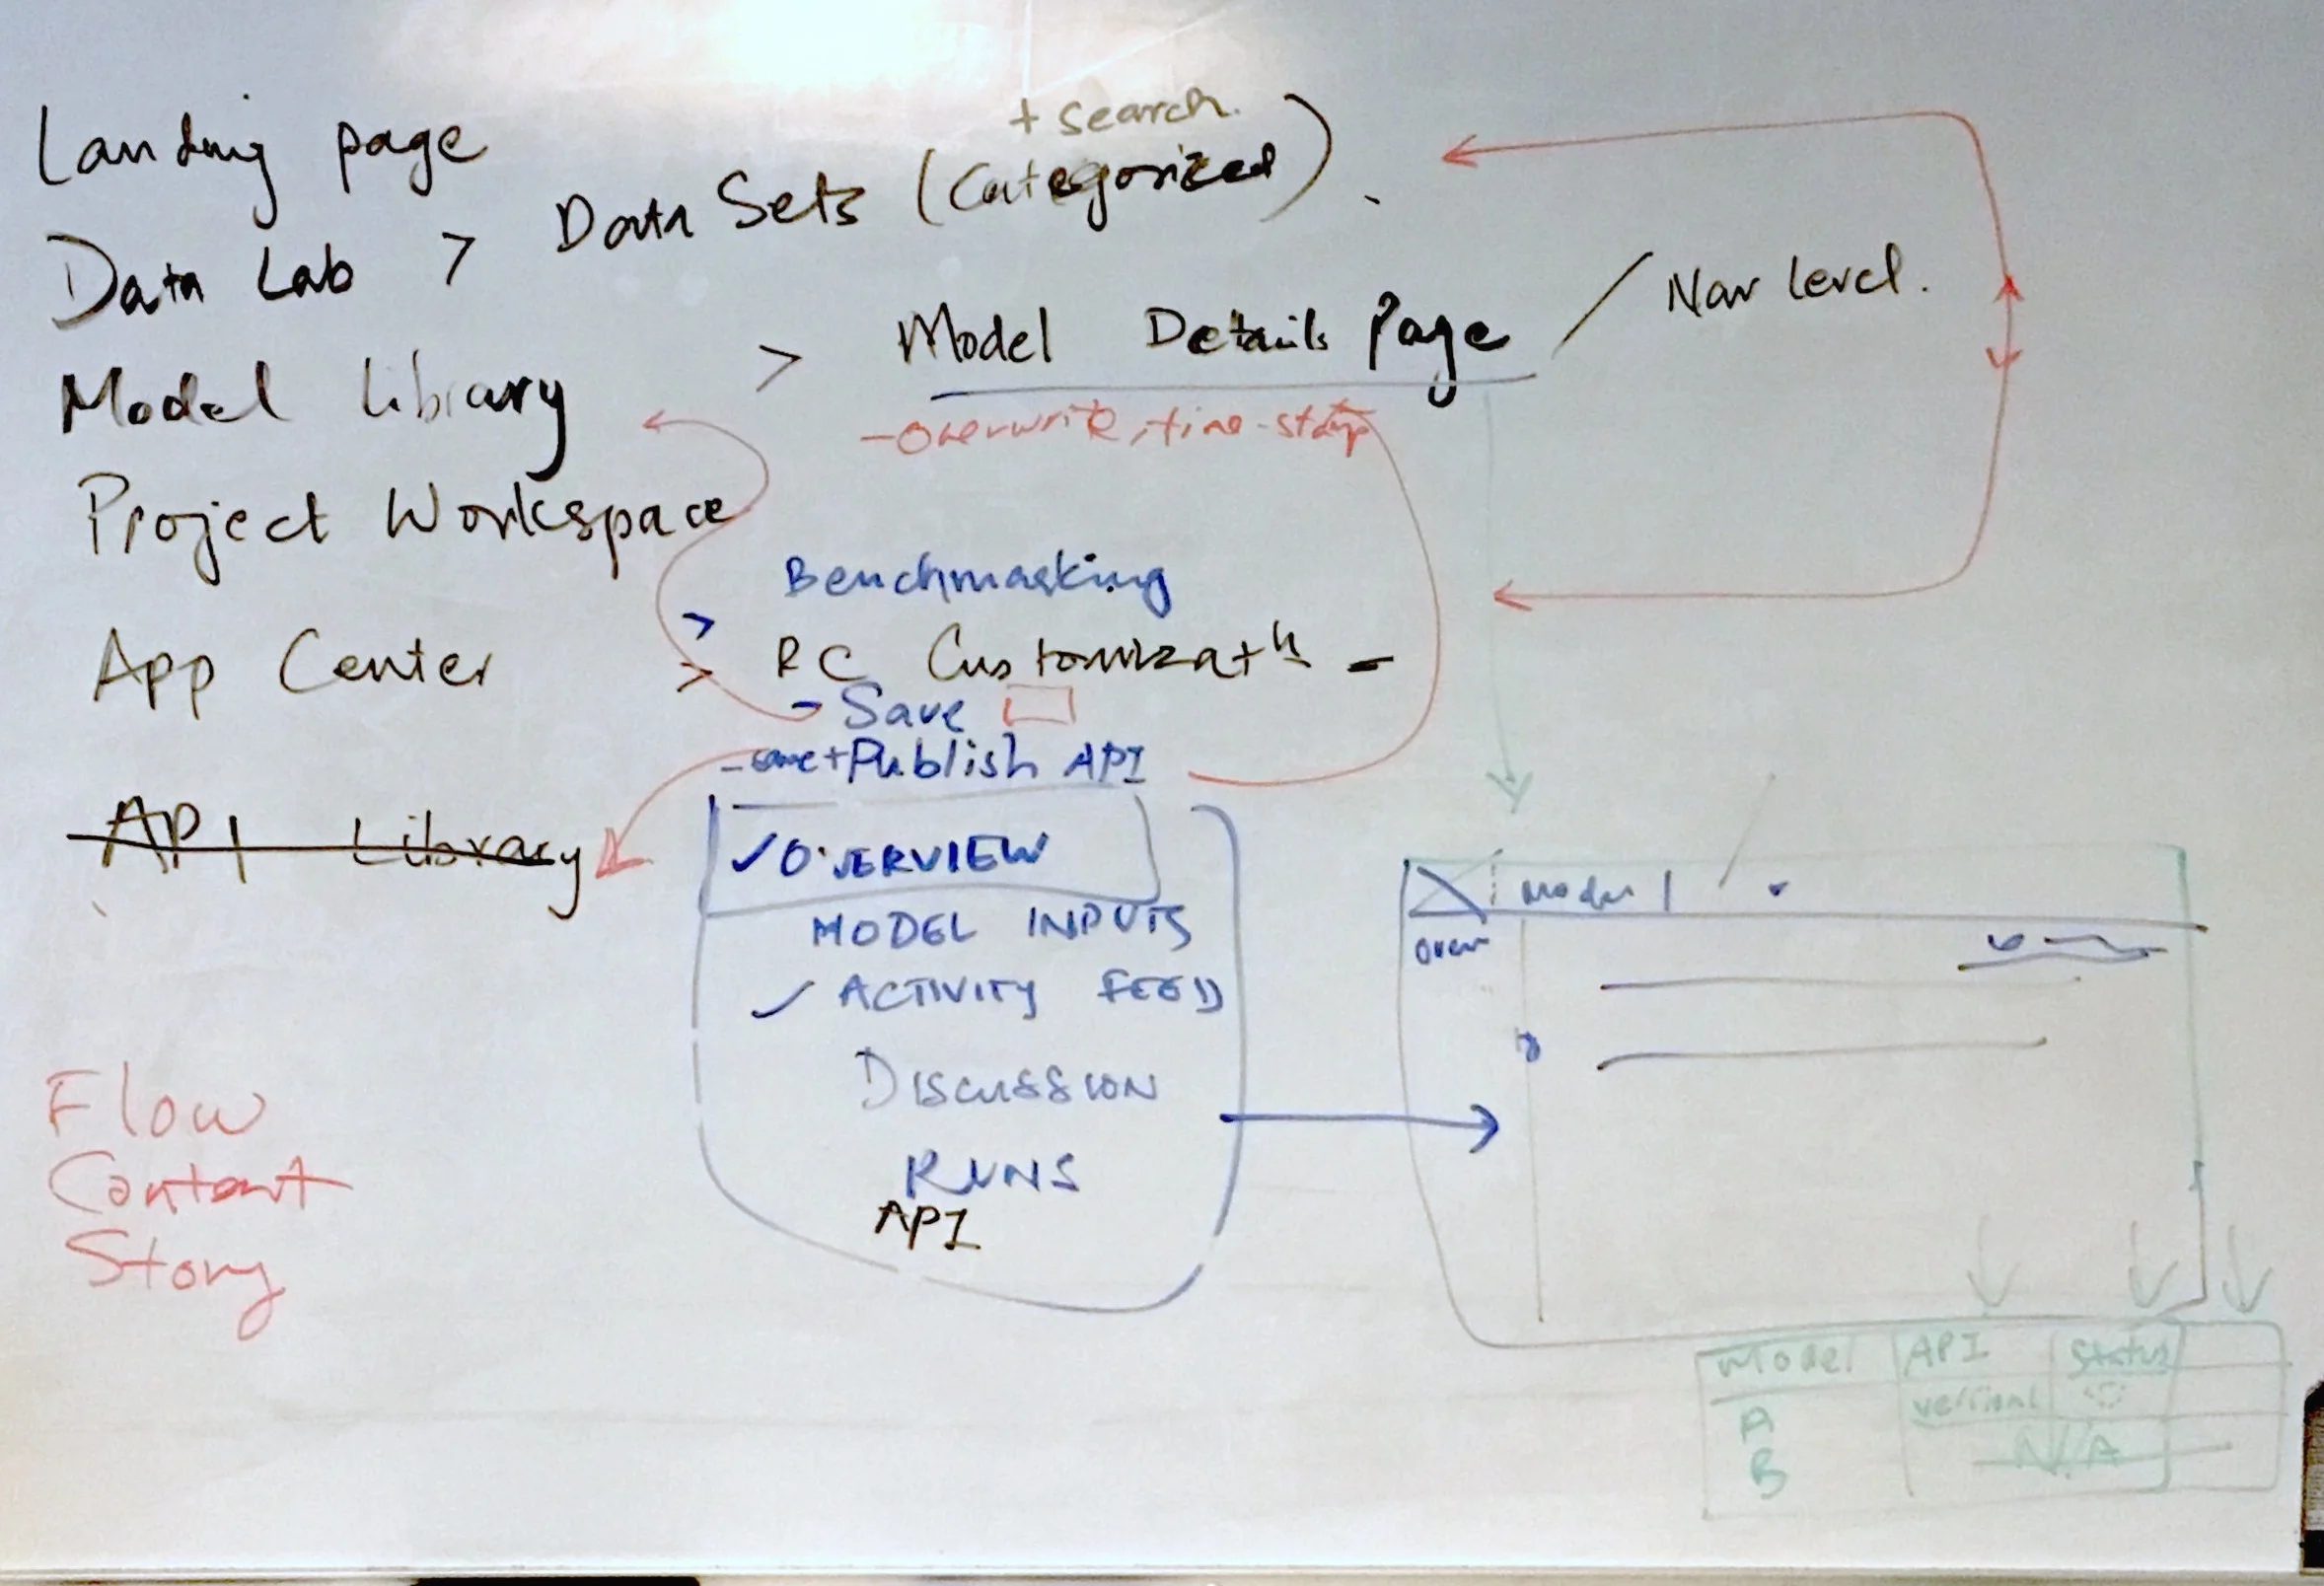 + search.
Landing page
Data Lab > Data Sets (Categorized).
Model Library > Model Details Page / Nav level.
- overwrite, time-stamp
Project Workspace
> Benchmarking
App Center > RC Customizatn -
- Save
- save + Publish API
API Library
✓ OVERVIEW
MODEL INPUTS
✓ ACTIVITY FEED
DISCUSSION
RUNS
API
Flow
Content
Story
Model 1
Over
Model API Status
A version1
B N/A